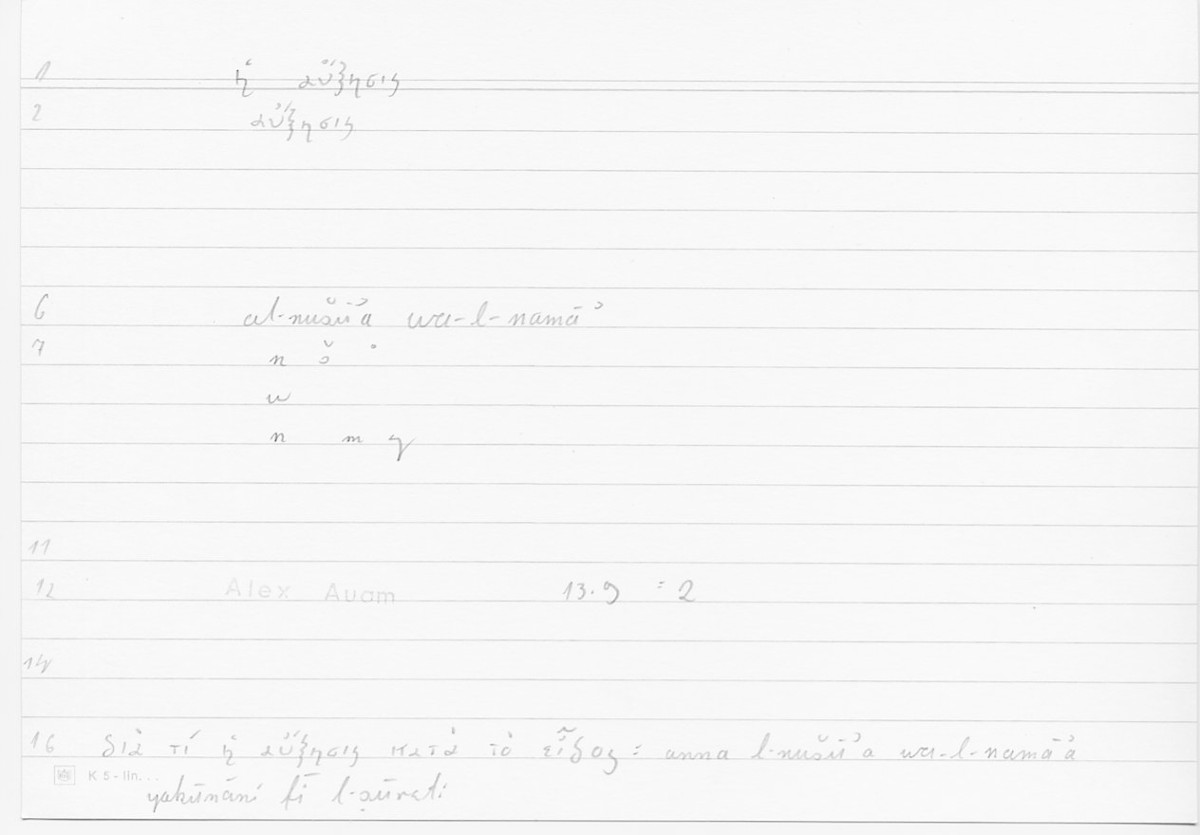 1 ἡ αὔξησις
2 αὔξησις
6 al-nušūʾa wa-l-namāʾ
7 n š ʾ
w
n m y
11
12 Alex Auam 13.9 = 2
14
16 διὰ τί ἡ αὔξησις κατὰ τὸ εἶδος : anna l-nušūʾa wa-l-namāʾa
K 5 - lin...
yakūnāni fī l-ṣūrati